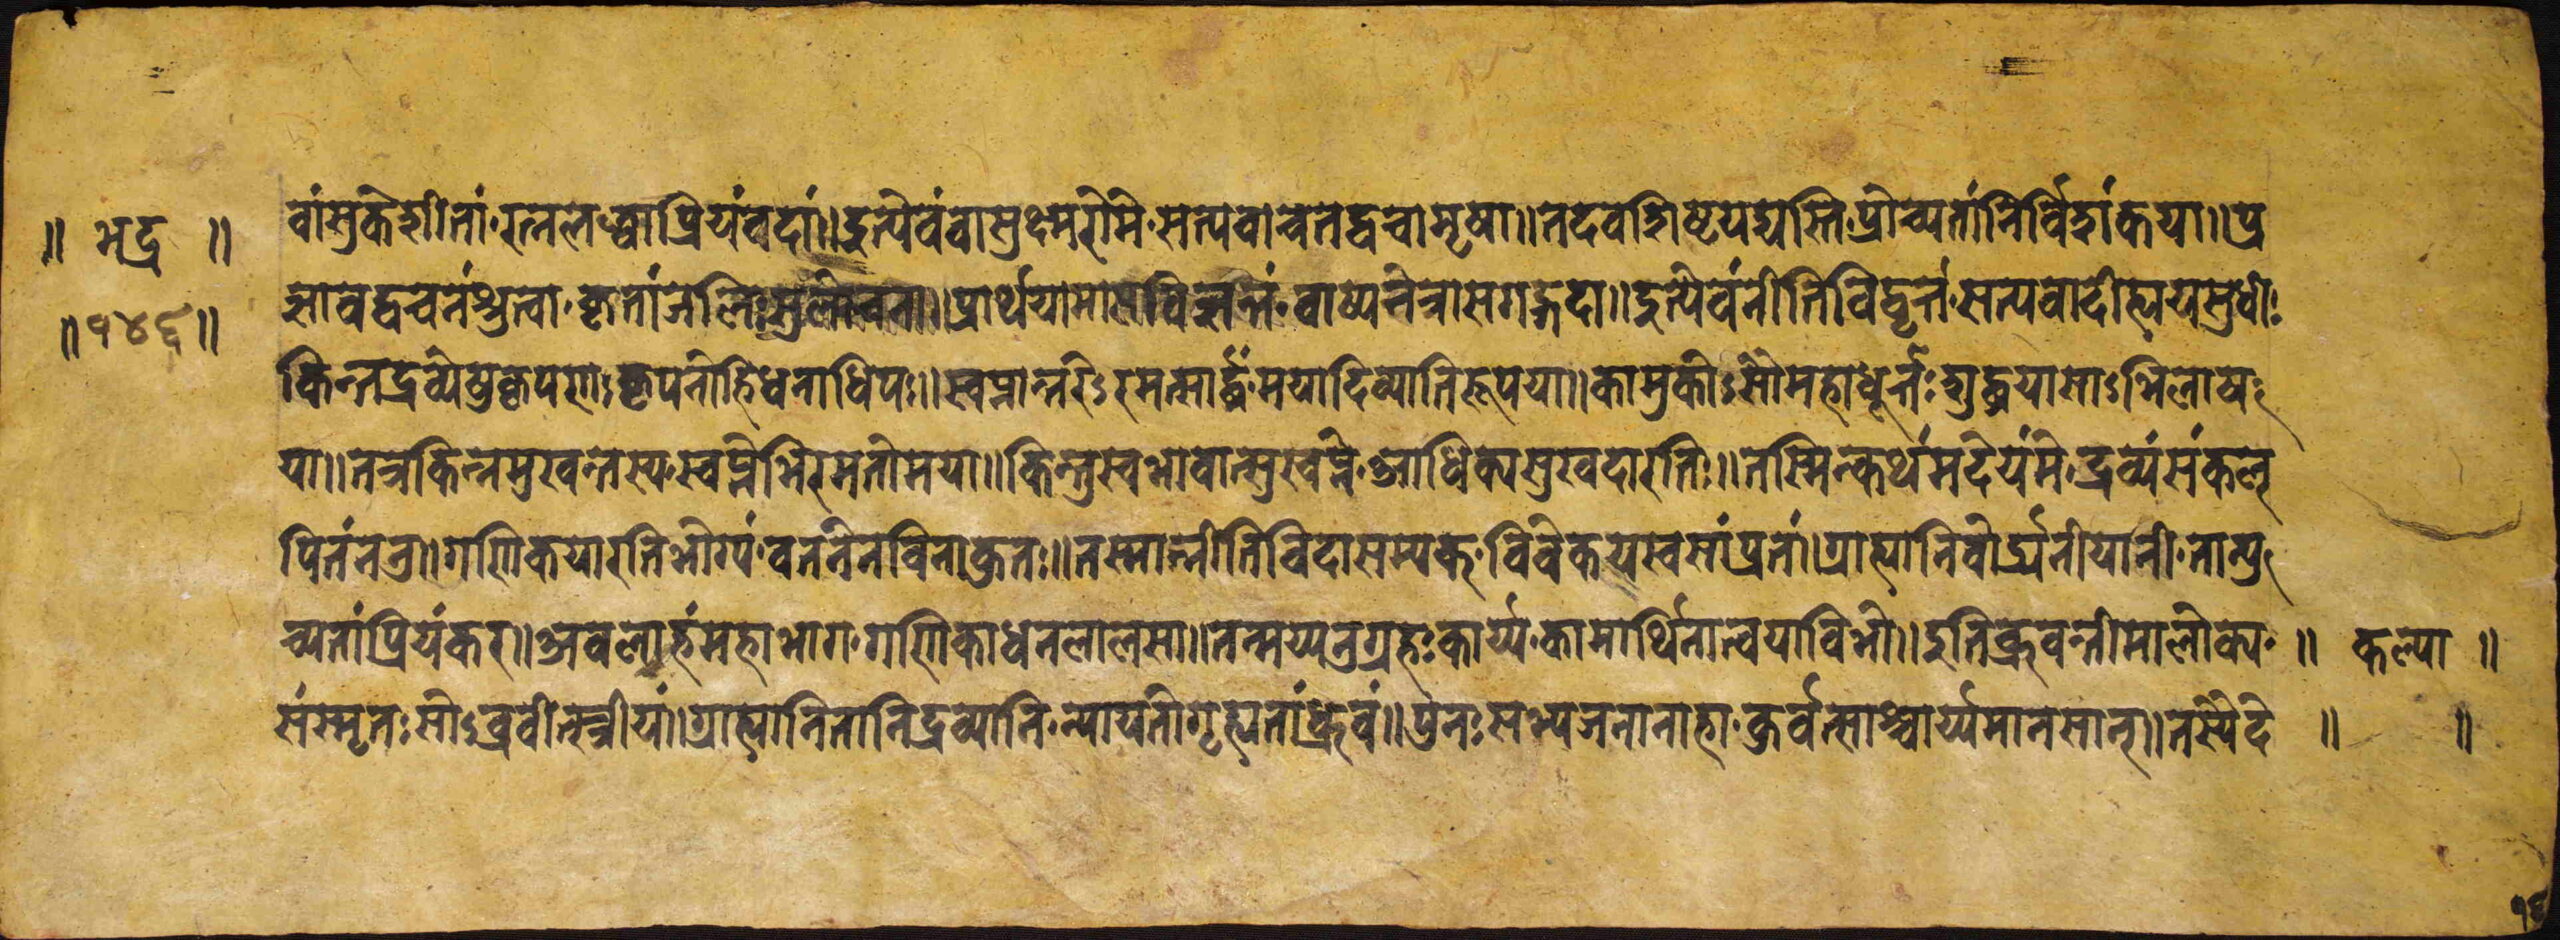 वांसुकेशीतां॰रत्नलेखाप्रियंवदां॥इत्येवंवासुक्ष्मरीमे॰सत्यवाचतद्वचामृषा॥तदवशिष्टयद्यस्ति॰प्रोच्यतांनिर्विशंकया॥प्र
॥ भद्र ॥
ज्ञावद्वचनंश्रुत्वा॰कृतांजलिःसुलोचना॥प्रार्थयामासविज्ञन्तं॰वाष्पनेत्रासगद्गदा॥इत्येवंनीतिविद्वृत्तं॰सत्यवादीह्ययसुधीः
॥१४६॥
किन्तद्रव्येषुकृपणः कृपनोहिधनाधिपः॥स्वप्नान्तरेऽरमत्सार्द्धं॰मयादिव्यातिरूपया॥कामुकोऽसौमहाधूर्त्तः शुद्धयासाऽभिलाषः
या॥तत्रकिन्नसुखन्तस्य॰स्वप्नेभिरमतोमया॥किन्तुस्वभावात्सुस्वप्ने॰आधिक्यसुखदारतिः॥तस्मिन्कथंमदेयंमे॰द्रव्यंसंकल्
पितंननु॥गणिकयारतिभोग्यं॰वेतनेनविनाकुतः॥तस्मान्नीतिविदासम्यक्॰विवेकयस्वसांप्रतां।ग्राह्यानिवार्ज्यनीयानी॰तान्यु
च्यतांप्रियंकर॥अवलाहंमहाभाग॰गणिकाधनलालसा॥तन्मय्यनुग्रहःकार्य्य॰कामार्थिनात्वयाविभो॥इतिब्रुवन्तीमालोक्य॰
॥ कल्या ॥
संस्मृतः सोऽब्रवीत्स्त्रीयां।ग्राह्यानितानिद्रव्यानि॰न्यायतोगृह्यतांध्रुवं॥पुनः सभ्यजनानाहा॰कुर्वत्साश्चार्य्यमानसान्॥तस्यैदे
॥ ॥